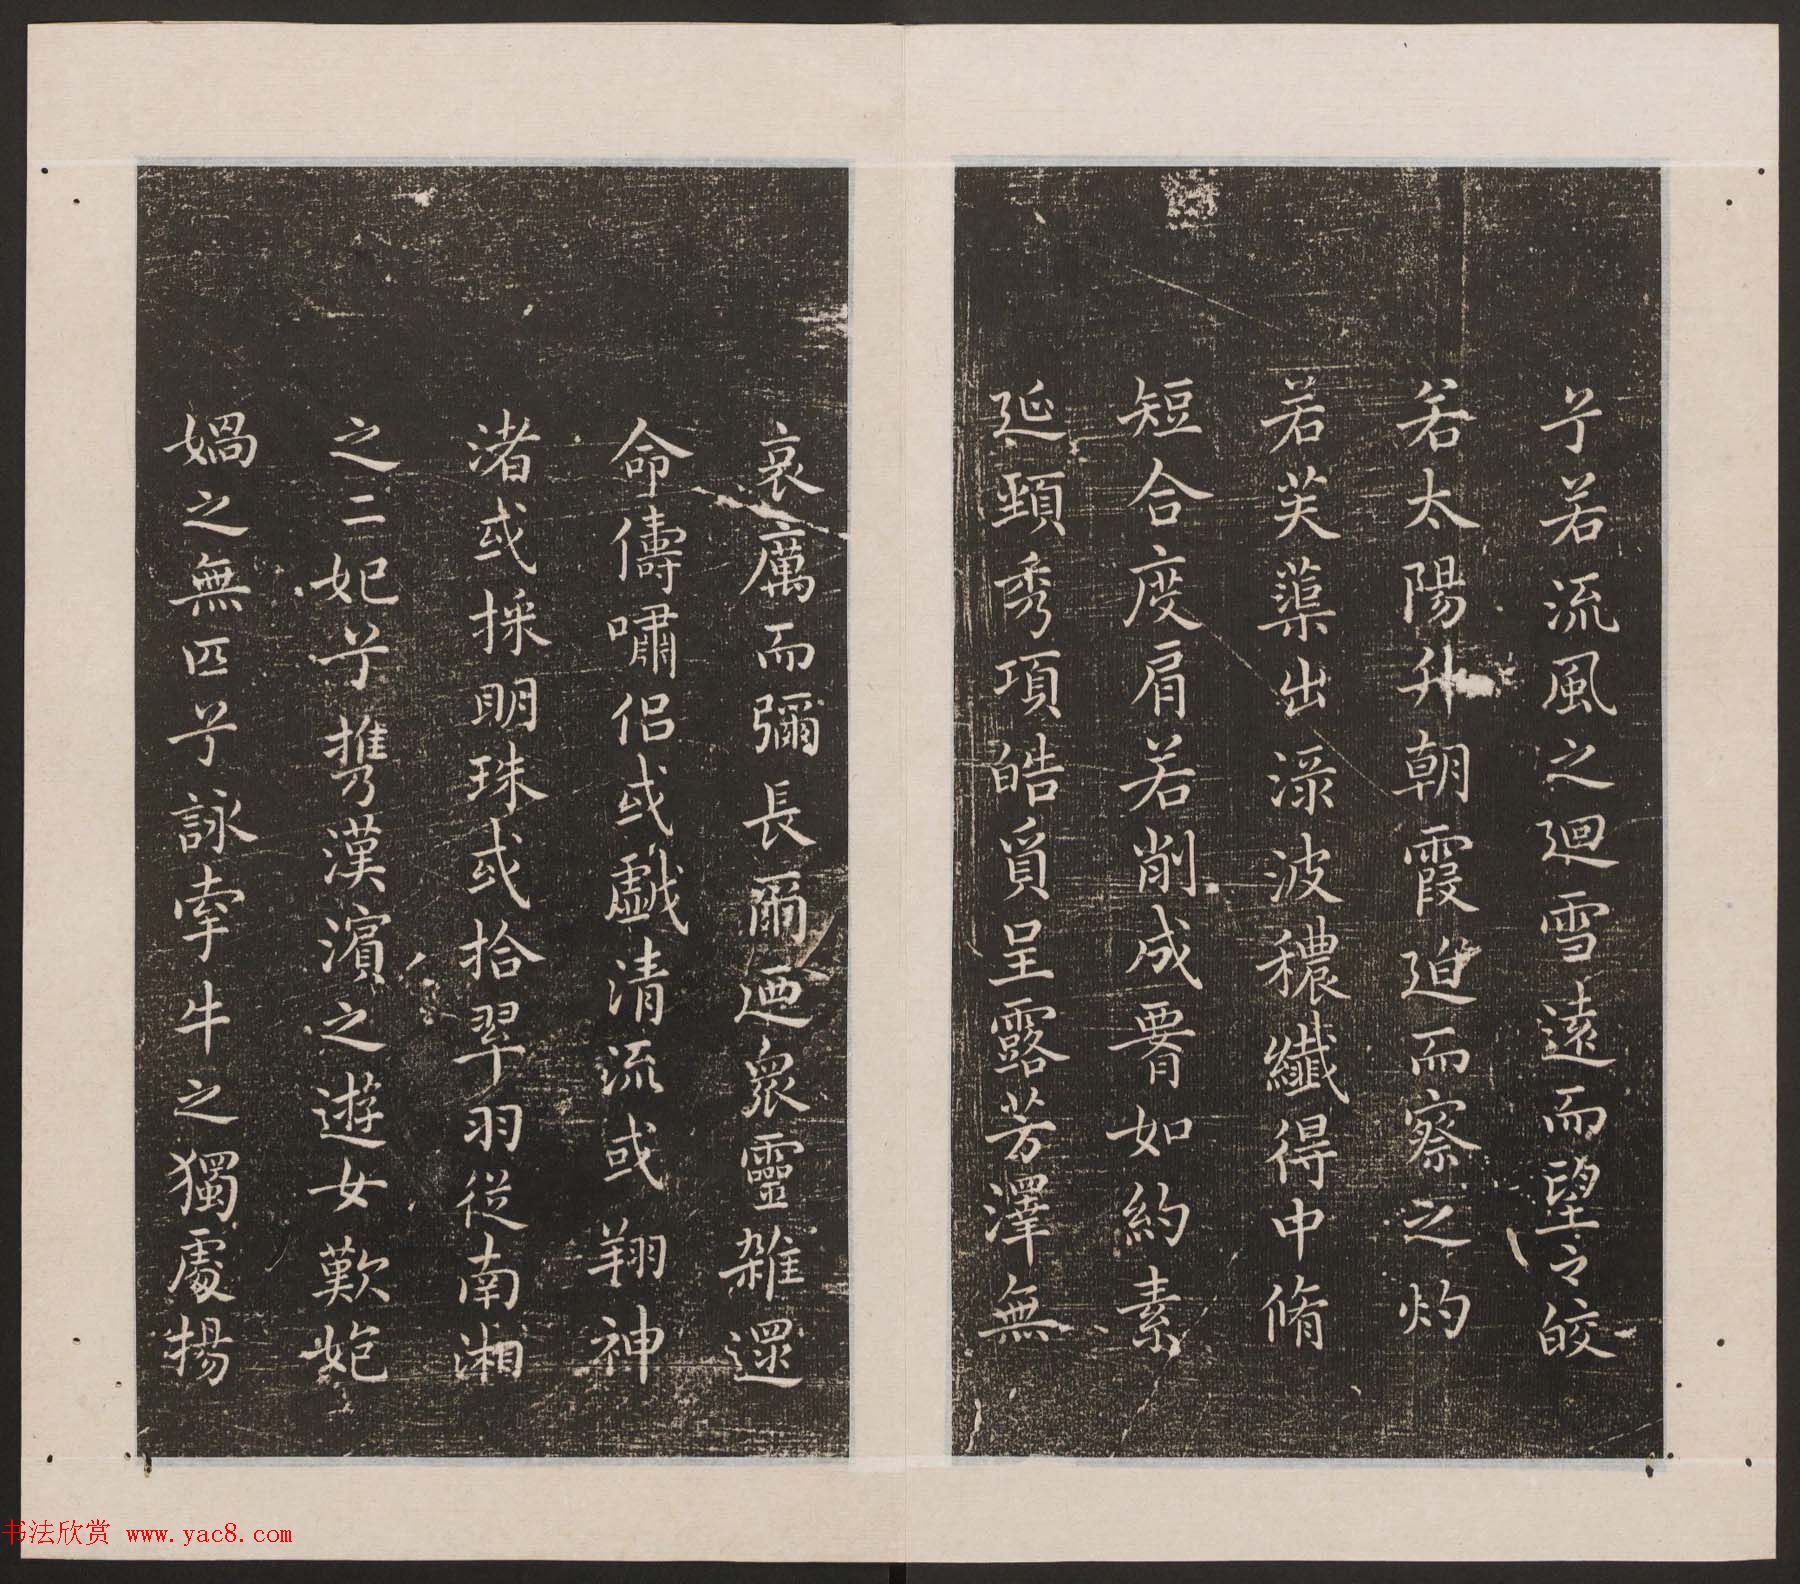 兮若流風之迴雪遠而望之皎
若太陽升朝霞迫而察之灼
若芙蕖出渌波穠纖得中脩
短合度肩若削成要如約素
延頸秀項皓質呈露芳澤無
哀厲而彌長爾迺衆靈雜遝
命儔嘯侶或戲清流或翔神
渚或採明珠或拾翠羽從南湘
之二妃兮攜漢濱之遊女歎匏
媧之無匹兮詠牽牛之獨處揚
书法欣赏 www.yac8.com